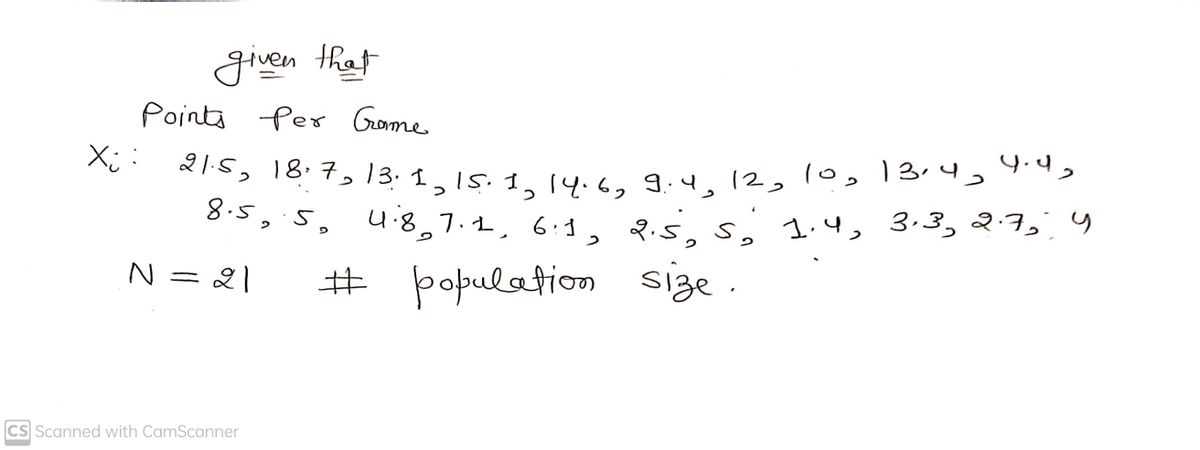 given that
Points Per Game
Xi : 21.5, 18.7, 13.1, 15.1, 14.6, 9.4, 12, 10, 13.4, 4.4,
8.5, 5, 4.8, 7.1, 6.1, 2.5, 5, 1.4, 3.3, 2.7, 4
N = 21 # population size.
CS Scanned with CamScanner